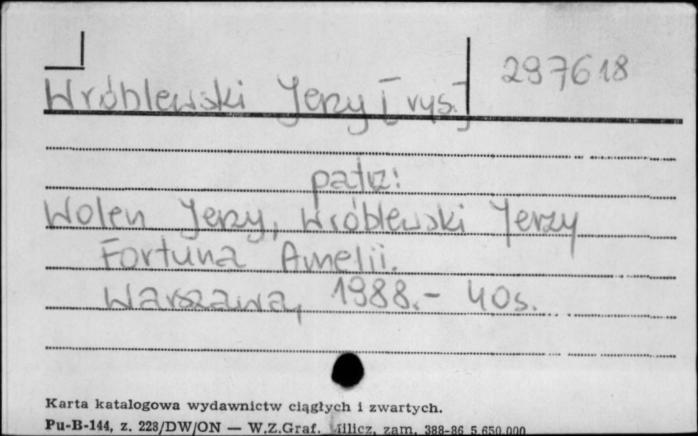 297618
Wróblewski Jerzy [rys.]
patrz:
Wolen Jerzy, Wróblewski Jerzy
Fortuna Amelii.
Warszawa, 1988.- 40s.
Karta katalogowa wydawnictw ciągłych i zwartych.
Pu-B-144, z. 228/DW/ON — W.Z.Graf. Milicz, zam. 388-86 5.650.000